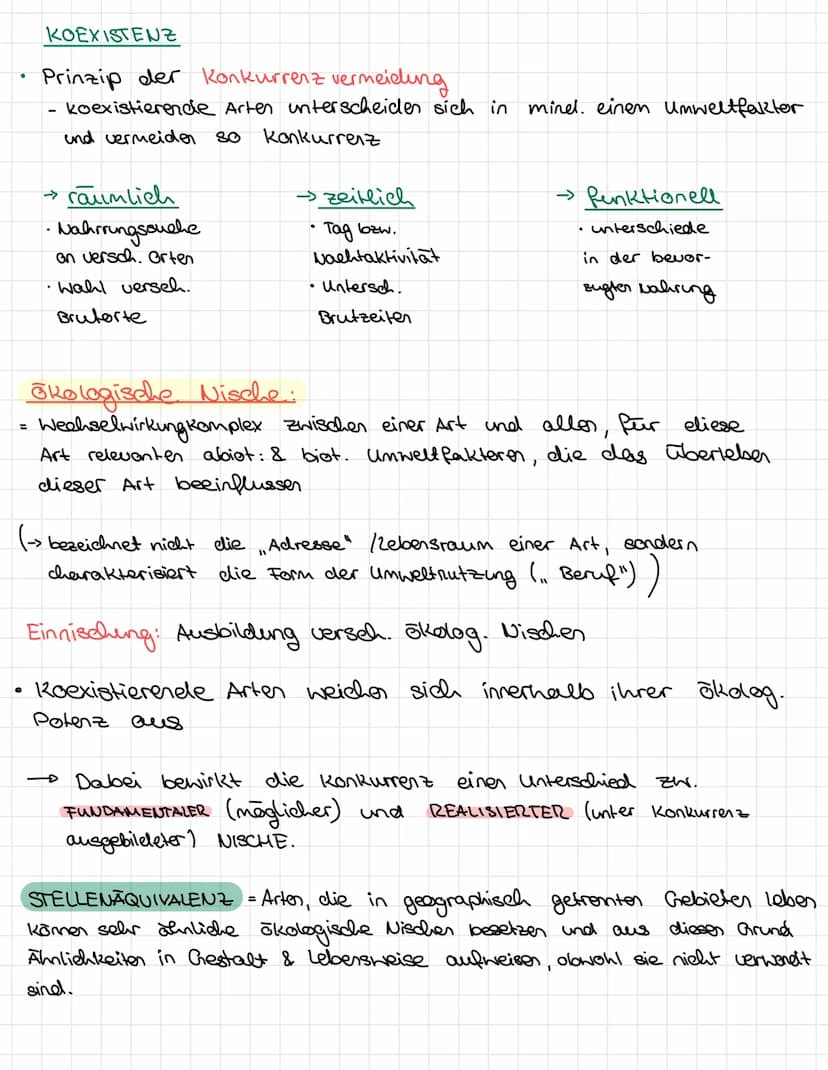 KOEXISTENZ
• Prinzip der Konkurrenzvermeidung
- koexistierende Arten unterscheiden sich in mind. einem Umweltfaktor
und vermeiden so Konkurrenz
→ räumlich → zeitlich → funktionell
· Nahrungssuche · Tag bzw. · unterschiede
an versch. Orten Nachtaktivität in der bevor-
· Wahl versch. · Untersch. zugten Nahrung
Brutorte Brutzeiten
Ökologische Nische:
= Wechselwirkungkomplex zwischen einer Art und allen, für diese
Art relevanten abiot. & biot. Umweltfaktoren, die das Überleben
dieser Art beeinflussen
(→ bezeichnet nicht die „Adresse" /Lebensraum einer Art, sondern
charakterisiert die Form der Umweltnutzung („Beruf"))
Einnischung: Ausbildung versch. ökolog. Nischen
• Koexistierende Arten weichen sich innerhalb ihrer ökolog.
Potenz aus
→ Dabei bewirkt die Konkurrenz einen Unterschied zw.
FUNDAMENTALER (möglicher) und REALISIERTER (unter Konkurrenz
ausgebildeter) NISCHE.
STELLENÄQUIVALENZ = Arten, die in geographisch getrennten Gebieten leben
können sehr ähnliche ökologische Nischen besetzen und aus diesen Grund
Ähnlichkeiten in Gestalt & Lebensweise aufweisen, obwohl sie nicht verwandt
sind.